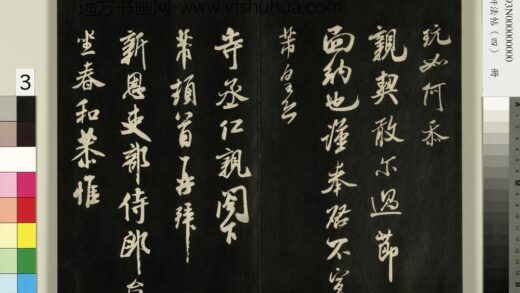 远方书画网-www.yfshuhua.com
玩如何忝
親契敢尔過節
面納也謹奉啓不宣
芾皇恐
寺丞仁親閣下
芾頓首再拜
新恩吏部侍郎台
坐春和恭惟
3
法帖（四） 册
93N000000000